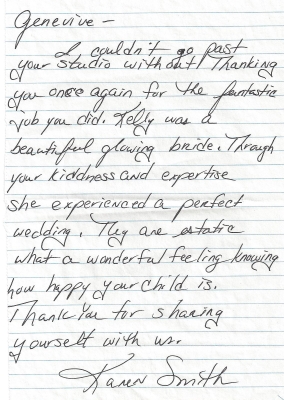 Genevive –
I couldn't go past
your studio without Thanking
you once again for the fantastic
job you did. Kelly was a
beautiful glowing bride. Through
your kiddness and expertise
she experienced a perfect
wedding. They are estatic
what a wonderful feeling knowing
how happy your child is.
Thank You for sharing
yourself with us.
Karen Smith